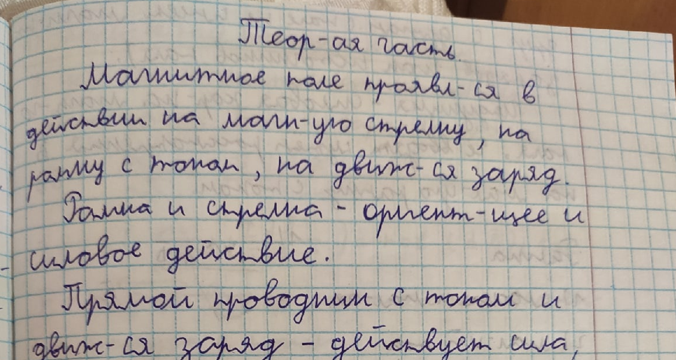 Теор-ая часть.
Магнитное поле проявл-ся в
действии на магн-ую стрелку, на
рамку с током, на движ-ся заряд.
Рамка и стрелка - ориент-щее и
силовое действие.
Прямой проводник с током и
движ-ся заряд - действует сила,